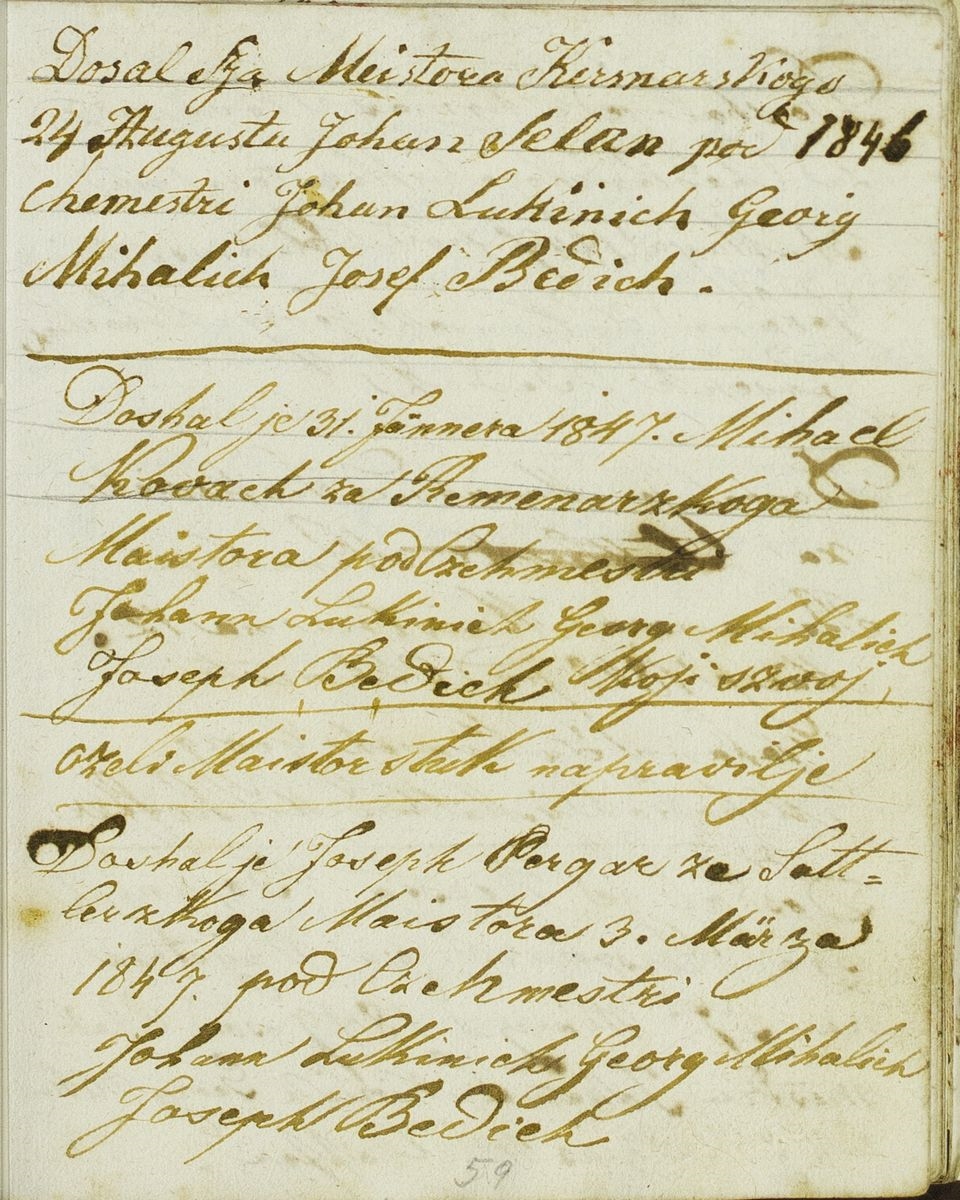 Dosal Sza Meistora Kermarskoga
24 Augusta Johan Selan pod 1846
Chemestri Johan Lukinich Georg
Mihalich Josef Bedich.
Doshal je 31. Jännera 1847. Mihael
Kovach za Remenarzkoga
Maistora pod Czehmestri
Johann Lukinich Georg Mihalich
Joseph Bedich Koji szvoj
czeli Maistorstuk napravilje
Doshalje Joseph Pergar za Satt=
lerzkoga Maistora 3. Märza
1847. pod Czehmestri
Johann Lukinich Georg Mihalich
Joseph Bedich
59